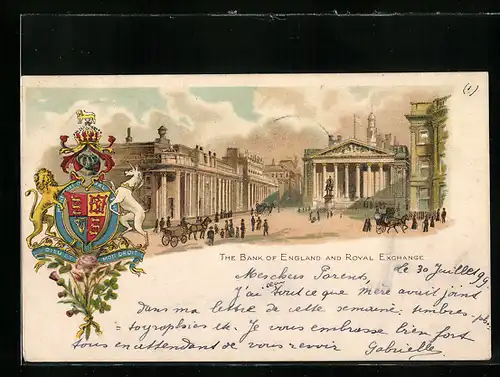 (1)
DIEU ET MON DROIT
THE BANK OF ENGLAND AND ROYAL EXCHANGE
Mes chers Parents, le 30 Juillet 99
J'ai eu tout ce que Mère avait joint
dans ma lettre de cette semaine, timbres, pho-
=tographies etc. Je vous embrasse bien fort
tous en attendant de vous revoir Gabrielle